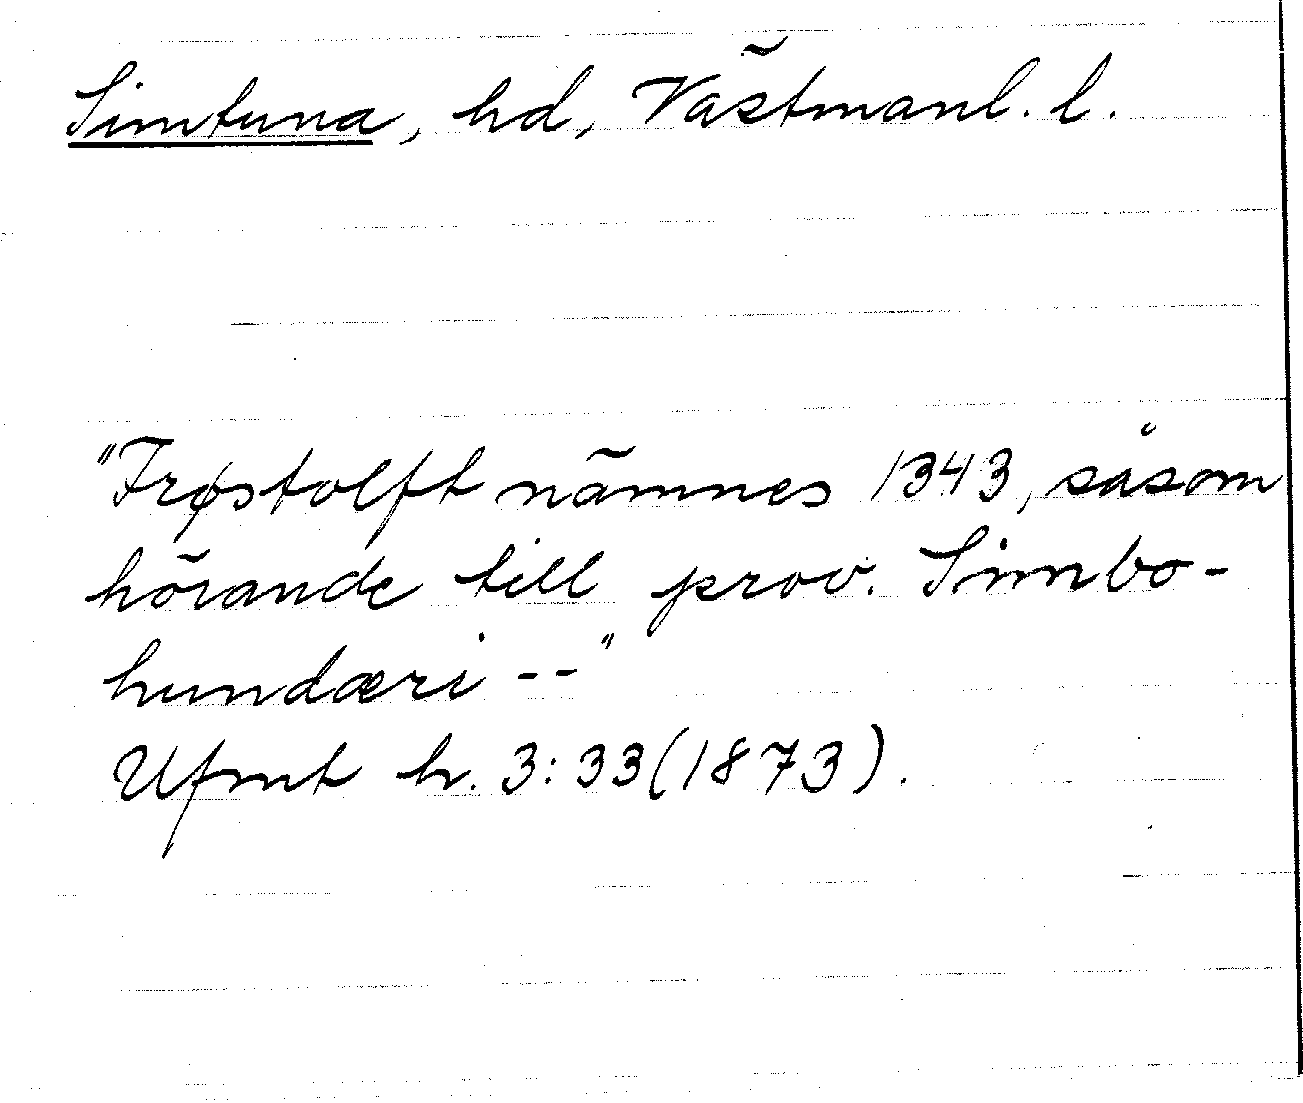 Simtuna, hd, Västmanl. l.
"Frøstolft nämnes 1343, såsom
hörande till prov. Simbo-
hundæri --"
Ufmt h. 3:33(1873).